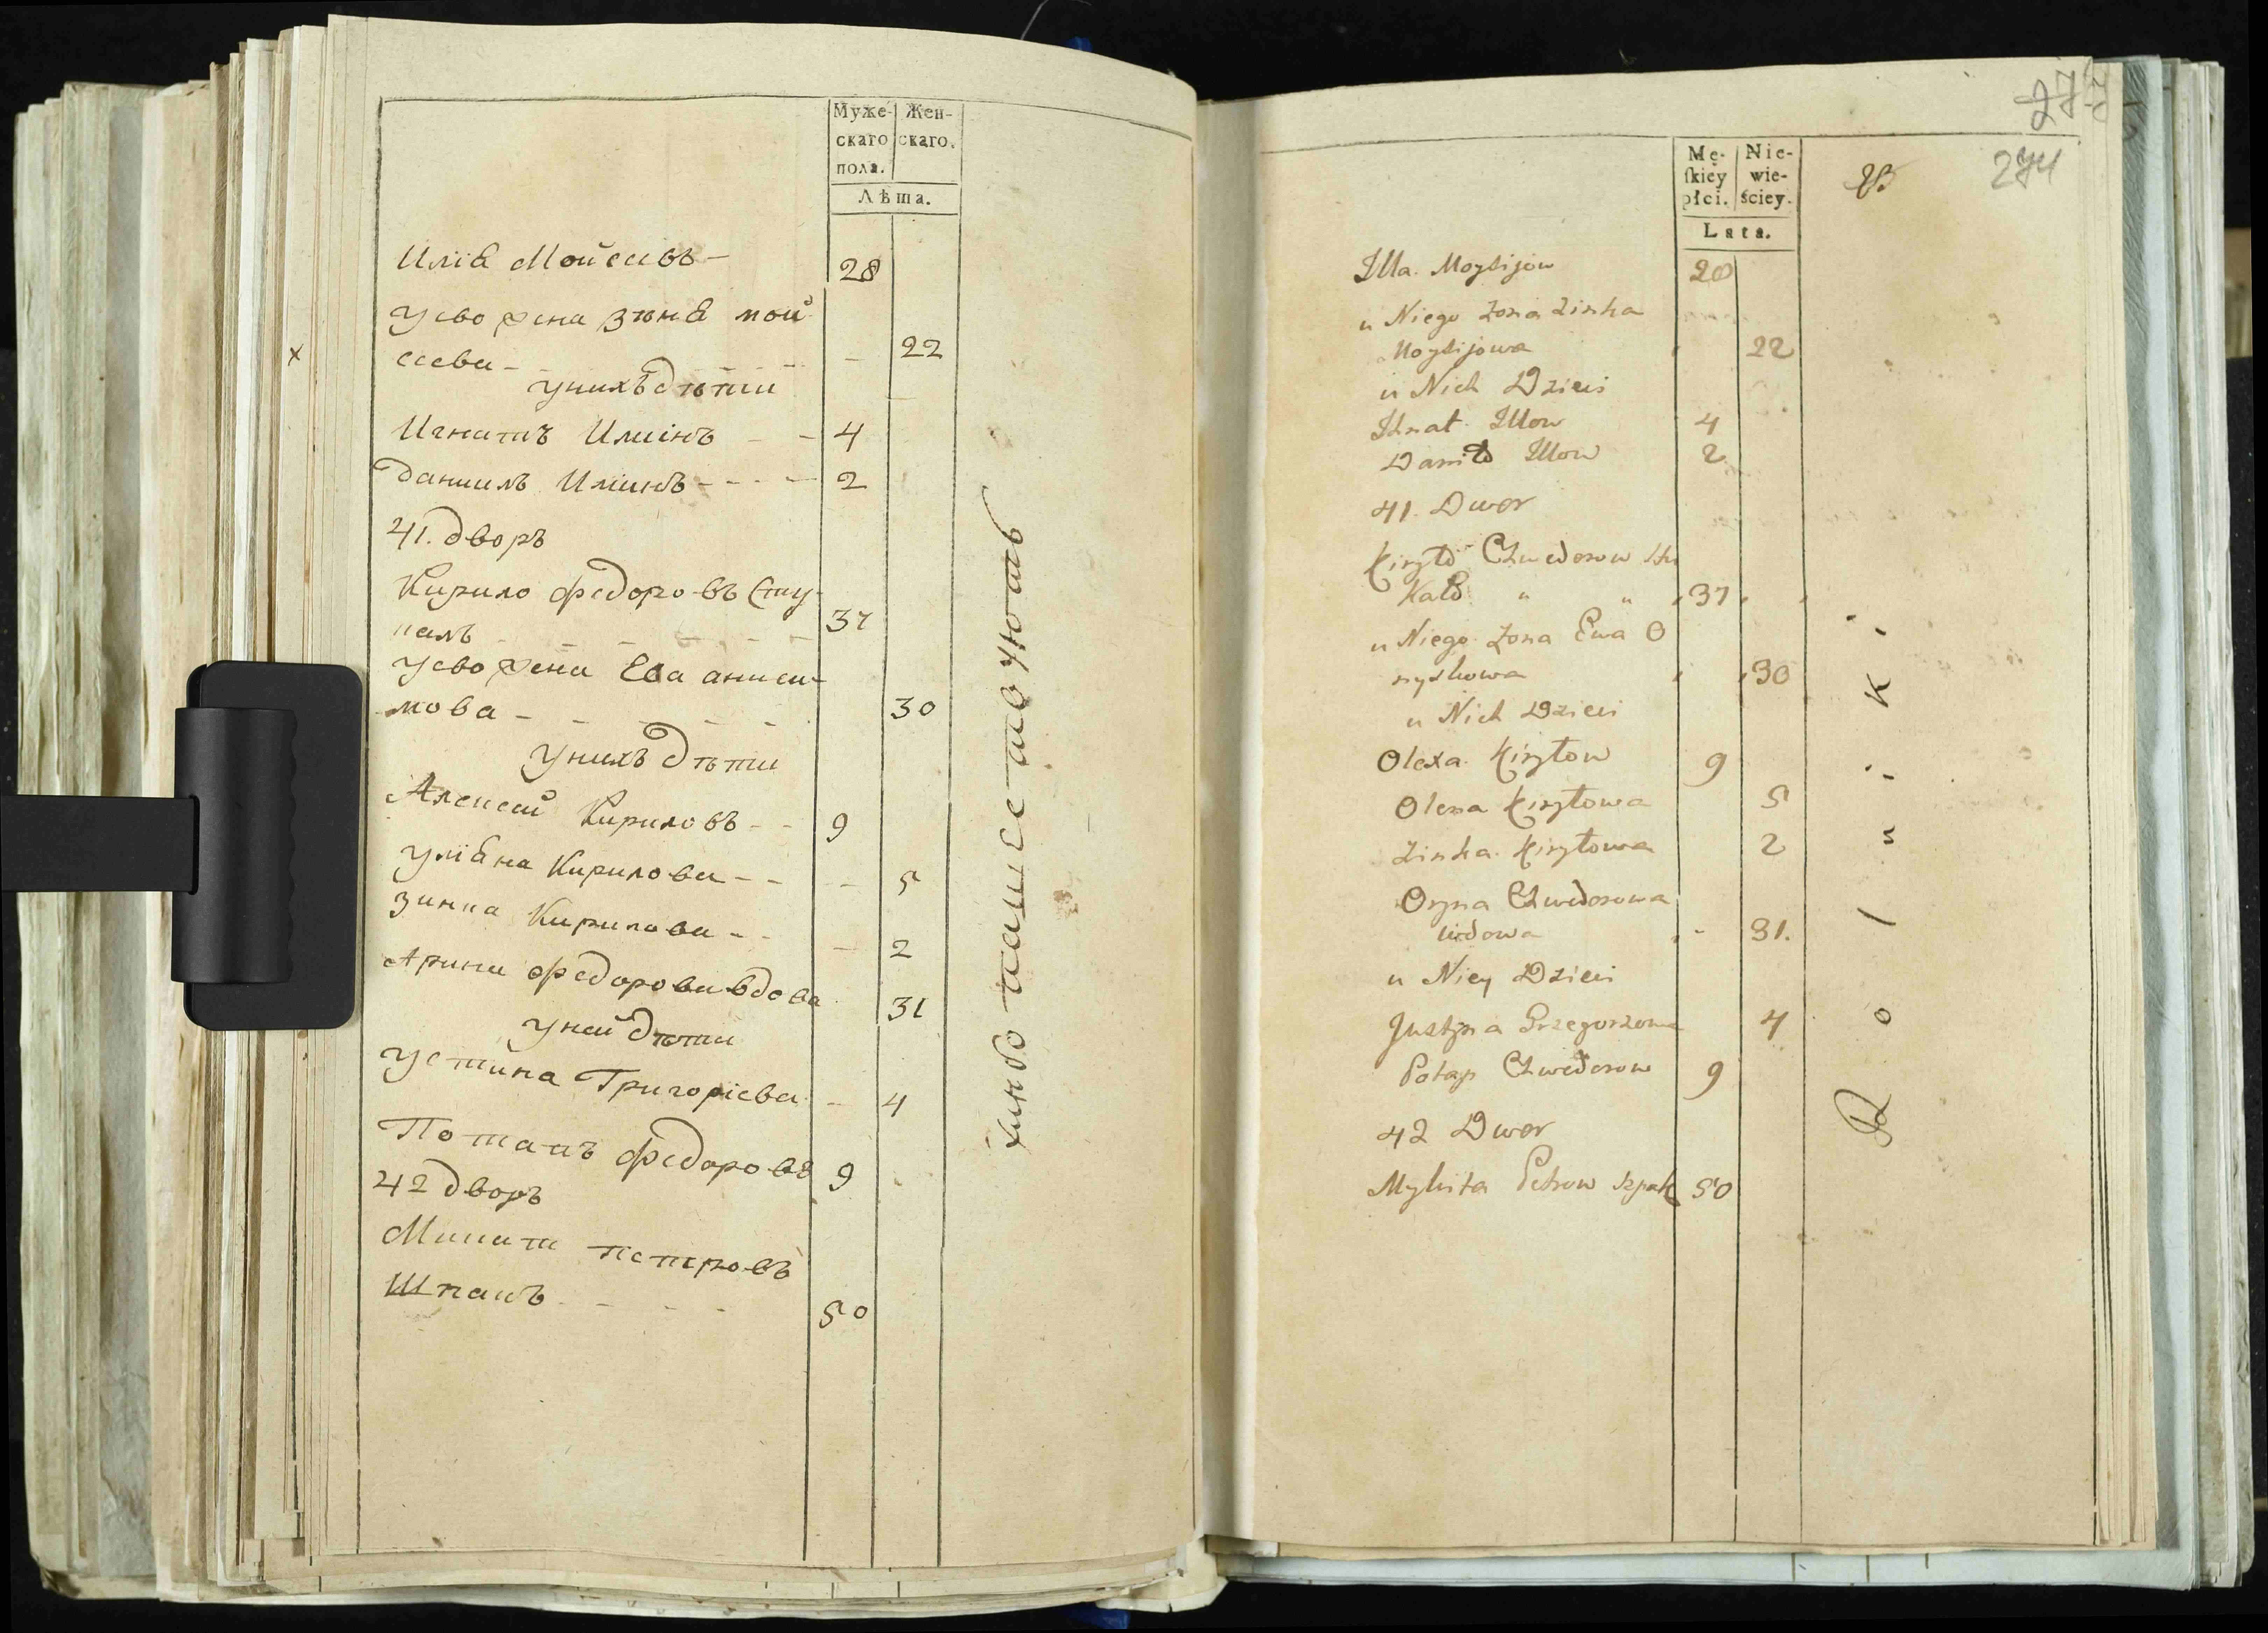 Муже-
скаго
пола.
Жен-
скаго.
Лѣта.
Илiя Мойсеевъ - 28
у ево жена Зѣня мой
сеева - 22
у нихъ дѣти
Игнатъ Илиiнъ - - 4
Даниилъ Илiинъ - - - 2
41. дворъ
Кирило Федоровъ Сту
калъ 37
у ево жена Ева аниси-
мова - 30
у нихъ дѣти
Алексей Кириловъ - - 9
Улiяна Кирилова - - 5
Зинка Кирилова - - 2
Арина Федорова вдова 31
у ней дѣти
Устина Григорiева - 4
Потапъ Федоровъ 9
42 дворъ
Микита Петровъ
Шпакъ 50
хлебопашествуютъ
274
Mę-
ſkiey
płci.
Nie-
wie-
ściey.
Lata.
Illa Moysijow 28
u Niego Zona Zinka
Moysijowa 22
u Nich Dzieci
Ihnat Illow 4
Daniło Illow 2
41. Dwor
Kiryło Chwedorow Stu
kało " " 37
u Niego Zona Ewa O
nyskowa 30
u Nich Dzieci
Olexa Kiryłow 9
Olena Kiryłowa 5
Zinka Kiryłowa 2
Oryna Chwedorowa
wdowa 31.
u Niey Dzieci
Justyna Grzegorzowa 4
Potap Chwedorow 9
42 Dwor
Mykita Petrow Szpak 50
Rolniki